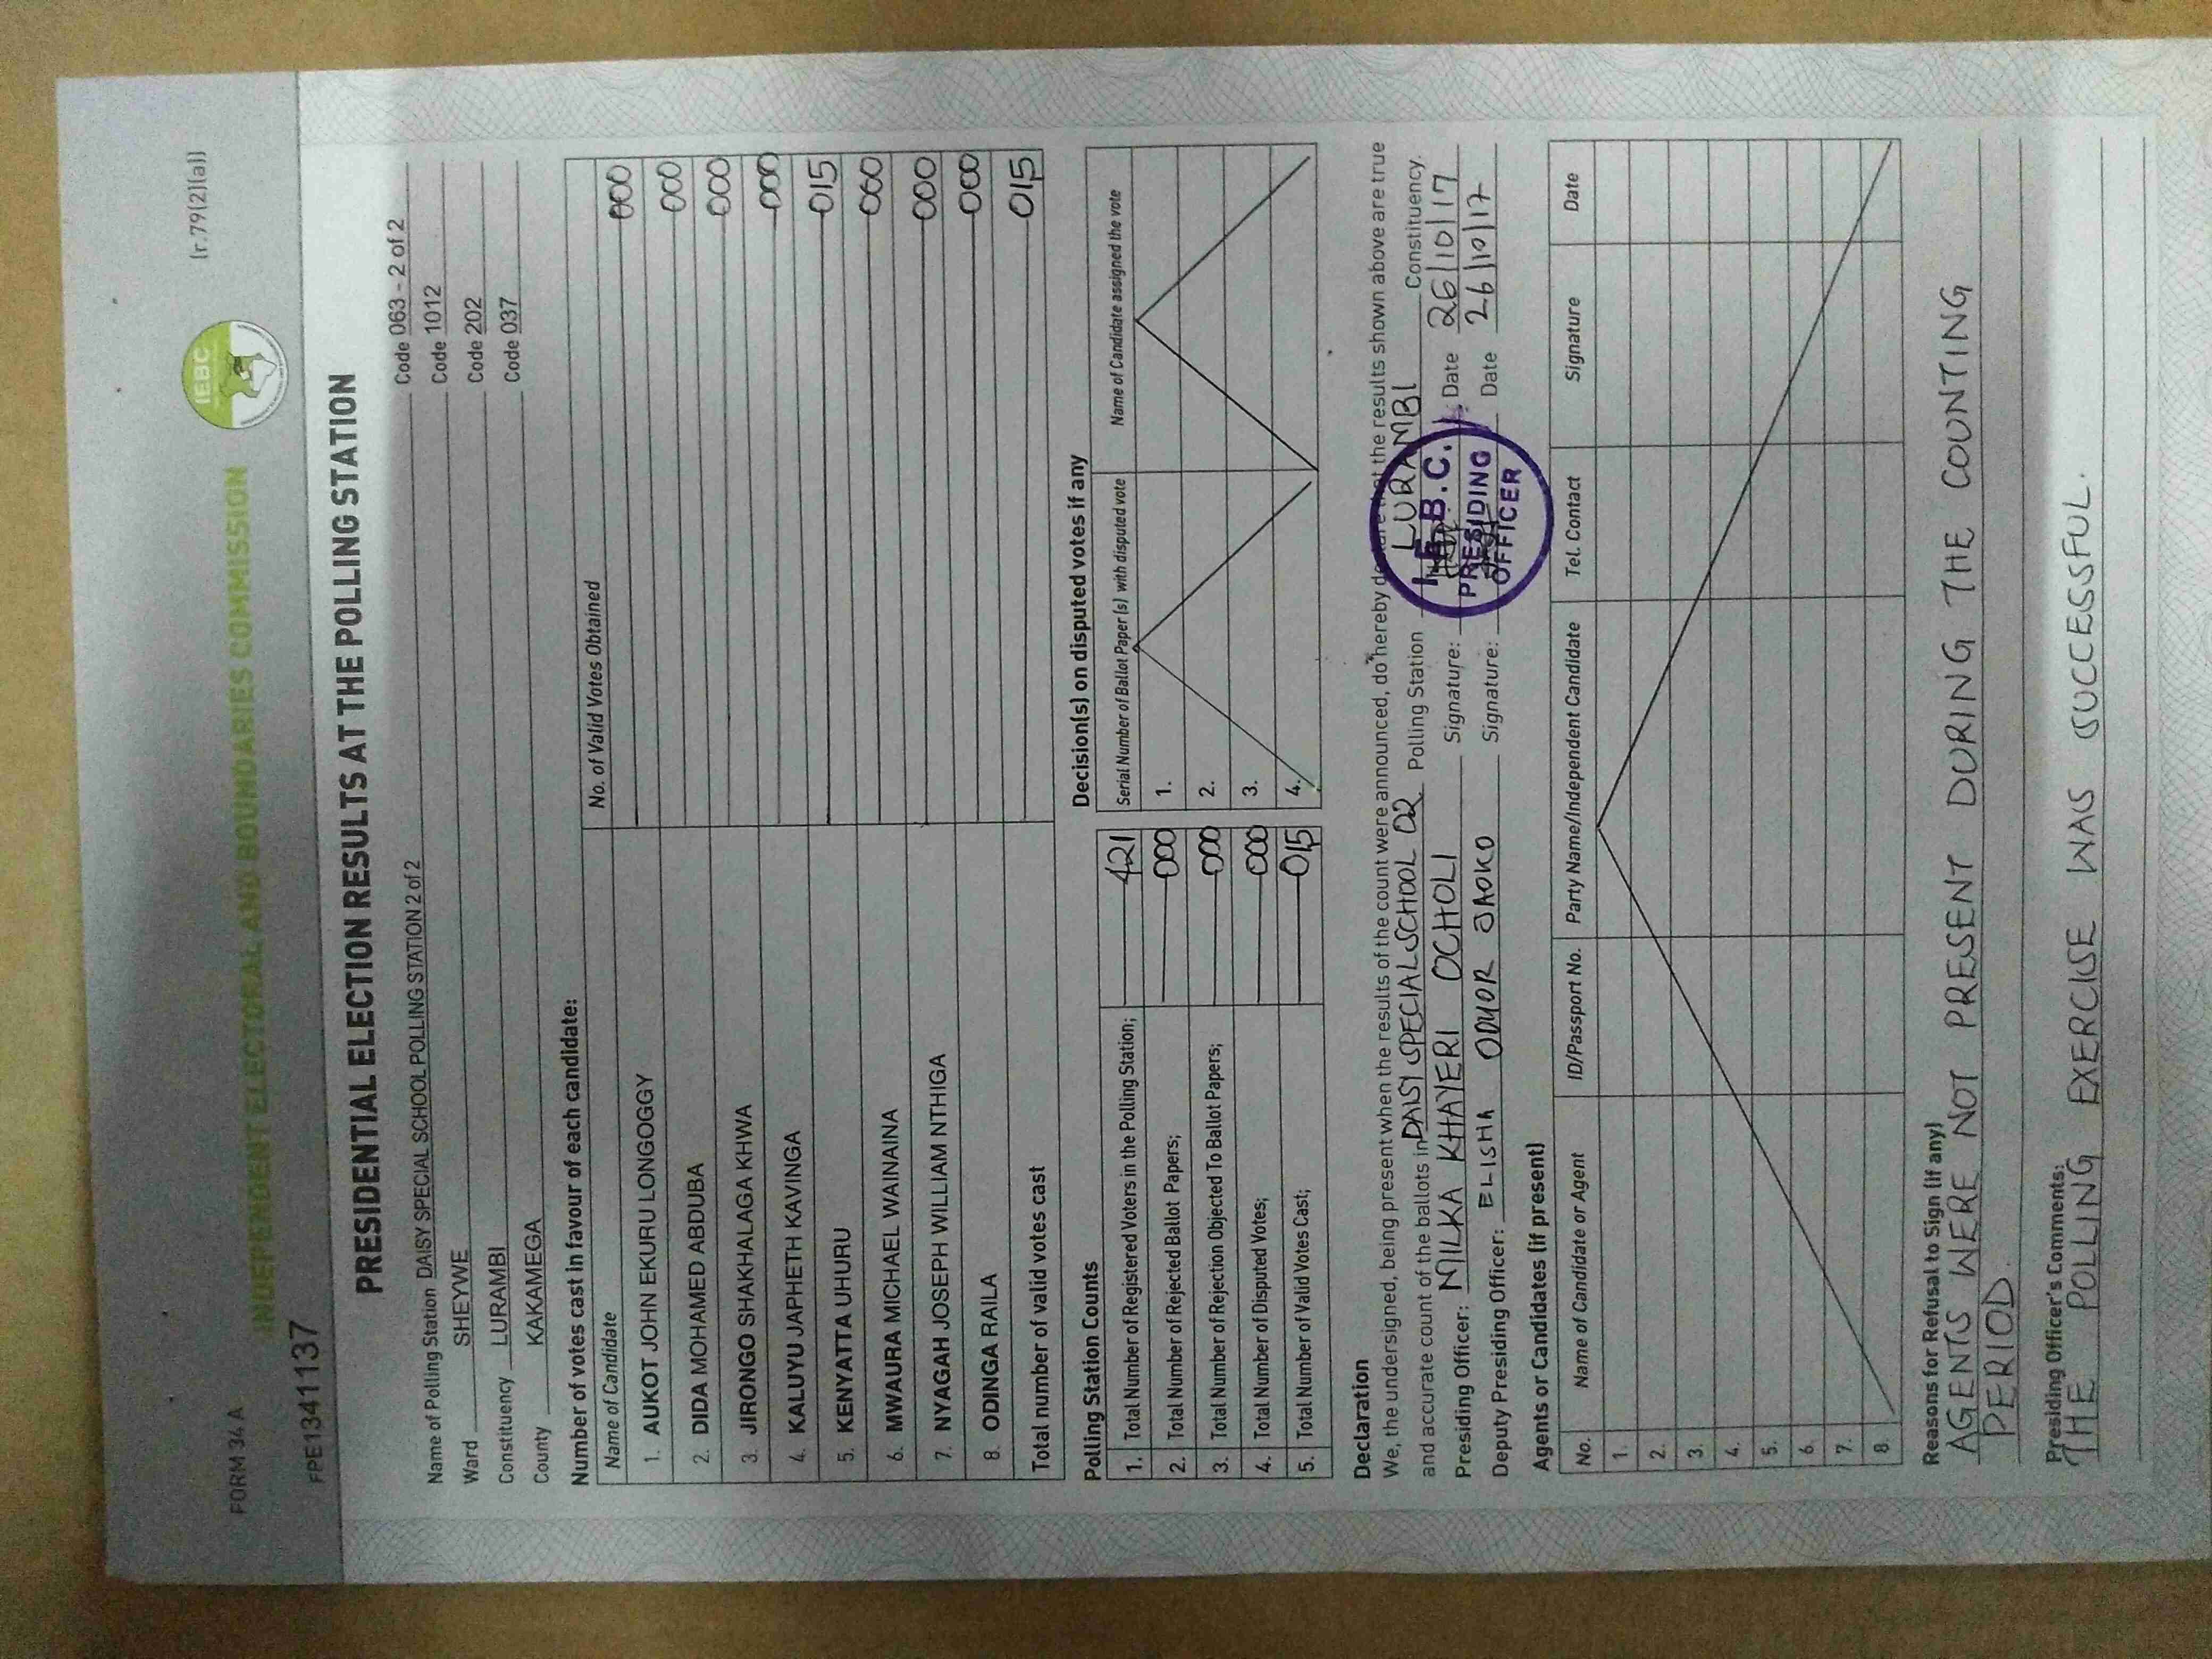 FORM 34 A
(r.79(2)(a))
INDEPENDENT ELECTORAL AND BOUNDARIES COMMISSION
IEBC
FPE1341137
PRESIDENTIAL ELECTION RESULTS AT THE POLLING STATION
Name of Polling Station DAISY SPECIAL SCHOOL POLLING STATION 2 of 2 Code 063 - 2 of 2
Ward SHEYWE Code 1012
Constituency LURAMBI Code 202
County KAKAMEGA Code 037
Number of votes cast in favour of each candidate:
Name of Candidate No. of Valid Votes Obtained
1. AUKOT JOHN EKURU LONGOGGY 000
2. DIDA MOHAMED ABDUBA 000
3. JIRONGO SHAKHALAGA KHWA 000
4. KALUYU JAPHETH KAVINGA 000
5. KENYATTA UHURU 015
6. MWAURA MICHAEL WAINAINA 000
7. NYAGAH JOSEPH WILLIAM NTHIGA 000
8. ODINGA RAILA 000
Total number of valid votes cast 015
Polling Station Counts
1. Total Number of Registered Voters in the Polling Station; 421
2. Total Number of Rejected Ballot Papers; 000
3. Total Number of Rejection Objected To Ballot Papers; 000
4. Total Number of Disputed Votes; 000
5. Total Number of Valid Votes Cast; 015
Decision(s) on disputed votes if any
Serial Number of Ballot Paper (s) with disputed vote Name of Candidate assigned the vote
1.
2.
3.
4.
Declaration
We, the undersigned, being present when the results of the count were announced, do hereby declare that the results shown above are true
and accurate count of the ballots in DAISY SPECIAL SCHOOL 02 Polling Station LURAMBI Constituency.
Presiding Officer: MILKA KHAYERI OCHOLI Signature: Date 26/10/17
Deputy Presiding Officer: ELISHA ODUOR JAOKO Signature: Date 26/10/17
I.E.B.C.
PRESIDING
OFFICER
Agents or Candidates (if present)
No. Name of Candidate or Agent ID/Passport No. Party Name/Independent Candidate Tel. Contact Signature Date
1.
2.
3.
4.
5.
6.
7.
8.
Reasons for Refusal to Sign (if any)
AGENTS WERE NOT PRESENT DURING THE COUNTING
PERIOD.
Presiding Officer's Comments:
THE POLLING EXERCISE WAS SUCCESSFUL.